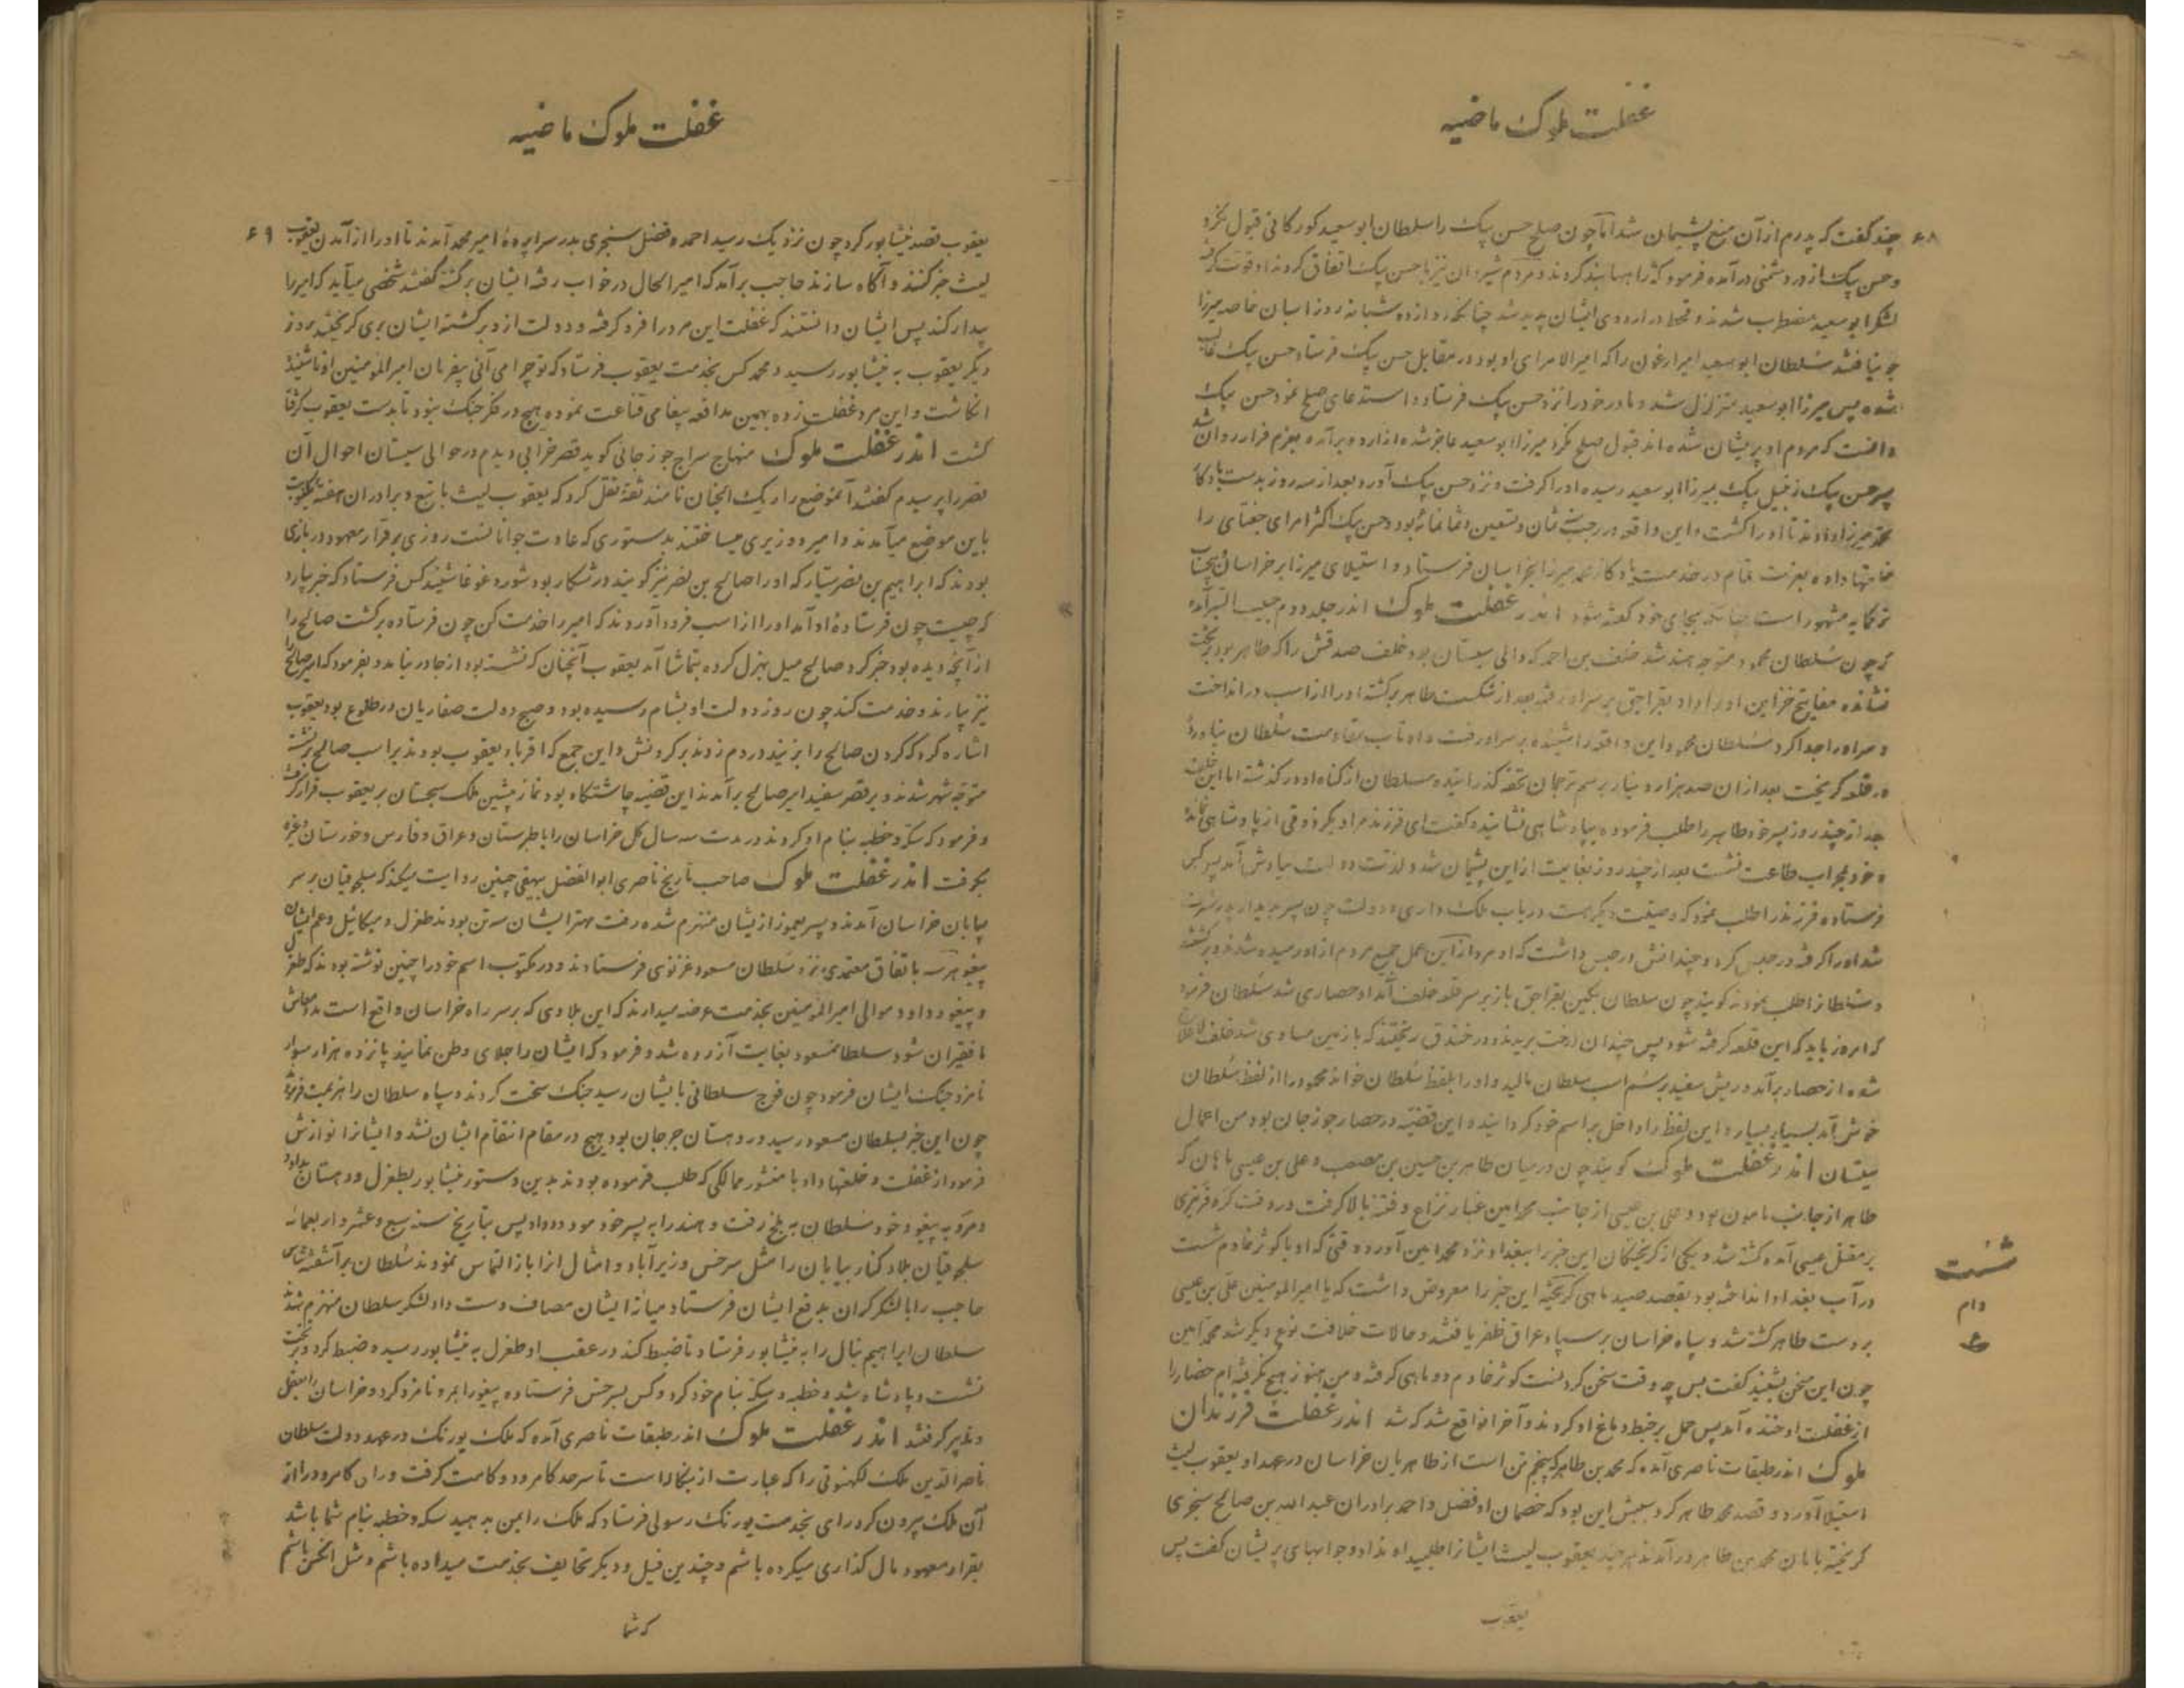 غفلت ملوک ماضیه
۶۸
چند گفت که پدرم از آن منع پشیمان شد اما چون صلح حسن بیک را سلطان ابوسعید کورکانی قبول نکرد
و حسن بیک از در دشمنی درآمده فرمود که را بند کردند و مردم شیروان نیز با حسن بیک اتفاق کردند
لشکر ابوسعید مضطرب شدند و قحط در اردوی ایشان پدید شد چنانکه دوازده شبانه روز اسبان خاصه میرزا
جو نیافتند سلطان ابوسعید امیر ارغون را که امیر الامرای او بود در مقابل حسن بیک فرستاد حسن بیک غالب
شده پس میرزا ابوسعید متزلزل شد و مادر خود را نزد حسن بیک فرستاد و استدعای صلح نمود حسن بیک
دانست که مردم او پریشان شده اند قبول صلح نکرد میرزا ابوسعید عاجز شده از اردو برآمده بعزم فرار روان شد
پسر حسن بیک زینل بیک بمیرزا ابوسعید رسیده او را گرفت و نزد حسن بیک آورد بعد از سه روز بدست یادگار
محمد میرزا دادند تا او را کشت و این واقعه در رجب ثمانمائه بود و حسن بیک اکثر امرای جغتای را
داده بعزت تمام در خدمت یادگار محمد میرزا بخراسان فرستاد و استیلای میرزا بر خراسان
مشهور است چنانکه بجای خود گفته شود اندر غفلت ملوک اندر جلد دوم حبیب السیر آمده
که چون سلطان محمود متوجه هند شد خلف بن احمد که والی سیستان بود خلف صدقش را که طاهر بود بر تخت
نشانده مفاتیح خزاین او را داد بغراجق بر سر او رفته بعد از شکست طاهر برگشته او را از اسب در انداخت
و سر او را جدا کرد سلطان محمود این واقعه را شنیده بر سر او رفت و او تاب مقاومت سلطان نیاورد
در قلعه گریخت بعد از آن صد هزار دینار برسم ترجمان تحفه گذرانیده سلطان از گناه او در گذشت اما این خلف
بعد از چند روز پسر خود طاهر را طلب فرموده بپادشاهی نشانیده گفت ای فرزند مرا دیگر ذوقی از پادشاهی نمانده
و خود بمحراب طاعت نشست بعد از چند روز بغایت از این پشیمان شد و لذت دولت بیادش آمد پس کس
فرستاده فرزند را طلب نمود که وصیت دیگر هست در باب ملک داری و دولت چون پسر بدیدار پدر مشرف
شد او را گرفته در حبس کرد و چندانش در حبس داشت که او مرد از این عمل جمیع مردم از او رمیده شدند و برگشتند
و سلطان را طلب نمودند گویند چون سلطان بکین بغراجق باز بر سر قلعه خلف آمد او حصاری شد سلطان فرمود
که امروز باید که این قلعه گرفته شود پس چندان درخت بریدند و در خندق ریختند که با زمین مساوی شد خلف لاعلاج
شده از حصار برآمد و ریش سفید بر سم اسب سلطان مالید و او را بلفظ سلطان خواند محمود را از لفظ سلطان
خوش آمد بسیار بسیار و این لفظ را داخل بر اسم خود گردانید و این قضیه در حصار جوزجان بود من اعمال
سیستان اندر غفلت ملوک گویند چون در میان طاهر بن حسین بن مصعب و علی بن عیسی ماهان که
طاهر از جانب مامون بود و علی بن عیسی از جانب محمد امین غبار نزاع و فتنه بالا گرفت در وقت
بر مقتل عیسی آمده کشته شد و یکی از گریختگان این خبر را ببغداد نزد محمد امین آورد وقتی که او با کوثر خادم شست
در آب بغداد انداخته بود بقصد صید ماهی گریخته این خبر را معروض داشت که یا امیر المومنین علی بن عیسی
بر دست طاهر کشته شد و سپاه خراسان بر سپاه عراق ظفر یافتند و حالات خلافت نوع دیگر شد محمد امین
چون این سخن بشنید گفت بس چه وقت سخن کردنست کوثر خادم دو ماهی گرفته و من هنوز هیچ نگرفته ام حضار را
از غفلت او خنده آمد پس حمل بر خبط دماغ او کردند و آخر واقع شد که شد اندر غفلت فرزندان
ملوک اندر طبقات ناصری آمده که محمد بن طاهر که پنجم تن است از طاهریان خراسان در عهد او یعقوب لیث
استیلا آورد و قصد محمد طاهر کرد سببش این بود که خصمان او فضل و احمد برادران عبد الله بن صالح سجزی
گریخته بامان محمد بن طاهر درآمدند هر چند یعقوب لیث ایشان را طلبید او نداد و جوابهای پریشان گفت پس
یعقوب
شست
دام
ع
غفلت ملوک ماضیه
۶۹
یعقوب قصد نیشابور کرد چون نزدیک رسید احمد و فضل سجزی بدر سراپرده امیر محمد آمدند تا او را از آمدن یعقوب
لیث خبر کنند و آگاه سازند حاجب برآمد که امیر الحال در خواب رفته ایشان برگشته گفتند شخصی میآید که امیر را
بیدار کند پس ایشان دانستند که غفلت این مرد را فرو گرفته و دولت از او برگشته ایشان بری گریختند روز
دیگر یعقوب به نیشابور رسید و محمد کس بخدمت یعقوب فرستاد که تو چرا می آئی بفرمان امیر المومنین او ناشنیده
انگاشت و این مرد غفلت زده بهمین مدافعه پیغامی قناعت نموده هیچ در فکر جنگ نبود تا بدست یعقوب گرفتار
گشت اندر غفلت ملوک منهاج سراج جوزجانی گوید قصر خرابی دیدم در حوالی سیستان احوال آن
قصر را پرسیدم گفتند آنموضع را ریک الجنان نامند ثقه نقل کرد که یعقوب لیث با تبع و برادران هفته یکنوبت
باین موضع میآمدند و امیر و وزیری میساختند بدستوری که عادت جوانانست روزی برقرار معهود در بازی
بودند که ابراهیم بن نصر سیار که او را صالح بن نصر نیز گویند در شکار بود شور و غوغا شنید کس فرستاد که خبر بیارد
که چیست چون فرستاده او آمد او را از اسب فرود آوردند که امیر را خدمت کن چون فرستاده برگشت صالح را
از آنچه دیده بود خبر کرد صالح میل بهزل کرده بتماشا آمد یعقوب آنچنان که نشسته بود از جا در نیامد و بفرمود که امیر صالح را
نیز بیارند و خدمت کند چون روز دولت او بشام رسیده بود و صبح دولت صفاریان در طلوع بود یعقوب
اشاره کرد که گردن صالح را بزنید در دم زدند بر گردنش و این جمع که اقرباء یعقوب بودند بر اسب صالح برنشسته
متوجه شهر شدند و بر قصر سفید امیر صالح برآمدند این قضیه چاشتگاه بود نماز پیشین ملک سجستان بر یعقوب قرار گرفت
و فرمود که سکه و خطبه بنام او کردند در مدت سه سال کل خراسان را با طبرستان و عراق و فارس و خوزستان و غیره
بگرفت اندر غفلت ملوک صاحب تاریخ ناصری ابوالفضل بیهقی چنین روایت میکند که سلجوقیان بر سر
بیابان خراسان آمدند و پسر یغمور از ایشان منهزم شده رفت مهتر ایشان سه تن بودند طغرل و میکائیل و عم ایشان
پیغو هر سه باتفاق معتمدی نزد سلطان مسعود غزنوی فرستادند و در مکتوب اسم خود را چنین نوشته بودند که طغرل
و پیغو و داود موالی امیر المومنین بخدمت عرضه میدارند که این بلادی که بر سر راه خراسان واقع است مدد معاش
ما فقیران شود سلطان مسعود بغایت آزرده شد و فرمود که ایشان را جلای وطن نمایند پانزده هزار سوار
نامزد جنگ ایشان فرمود چون فوج سلطانی بایشان رسید جنگ سخت کردند و سپاه سلطان را هزیمت فرمود
چون این خبر بسلطان مسعود رسید در دهستان جرجان بود هیچ در مقام انتقام ایشان نشد و ایشانرا نوازش
فرمود از غفلت و خلعتها داد با منشور ممالکی که طلب فرموده بودند بدین دستور نیشابور بطغرل و دهستان بداود
و مرو به پیغو و خود سلطان به بلخ رفت و هند را به پسر خود مودود داد پس بتاریخ سنه سبع و عشر و اربعمائه
سلجوقیان بلاد کنار بیابان را مثل سرخس وزیرآباد و امثال انرا باز التماس نمودند سلطان برآشفته
حاجب را با لشکر گران بدفع ایشان فرستاد میانه ایشان مصاف دست داد لشکر سلطان منهزم شد
سلطان ابراهیم نیال را به نیشابور فرستاد تا ضبط کند در عقب او طغرل به نیشابور رسیده ضبط کرد و بر تخت
نشست و پادشاه شد و خطبه و سکه بنام خود کرد و کس بسرخس فرستاده پیغو را بمرو نامزد کرد و خراسان را بعقل
و تدبیر گرفتند اندر غفلت ملوک اندر طبقات ناصری آمده که ملک یوزبک در عهد دولت سلطان
ناصر الدین ملک لکهنوتی را که عبارت از بنگاله است تا سرحد کامرود و کامت گرفت و رای کامرود را از
آن ملک بیرون کرد رای بخدمت یوزبک رسولی فرستاد که ملک را بمن بدهید سکه و خطبه بنام شما باشد
بقرار معهود مال گذاری میکرده باشم و چندین فیل و دیگر تحایف بخدمت میداده باشم و مثل
که شما